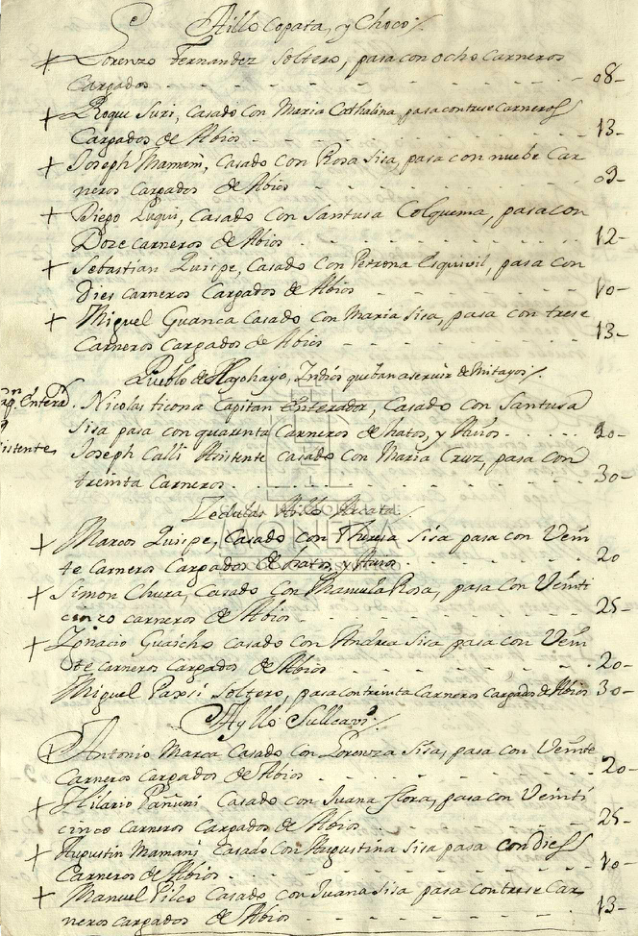 Aillo Copata, y Choco /.
Lorenzo Fernandez Soltero, pasa con ocho Carneros
Cargados - - - 08-
Roque Suri, Casado con Maria Cathalina pasa con trese Carneros
Cargados de Abios - - - 13-
Joseph Mamani, Casado con Rosa Sisa, pasa con nuebe Car
neros Cargados de Abios - - - 09-
Diego Luqui, Casado con Santusa Colquema, pasa con
Doze carneros de Abios - - - 12-
Sebastian Quispe, Casado con Petrona Esquivil, pasa con
Dies carneros Cargados de Abios - - - 10-
Miguel Guanca Casado con Maria Sisa, pasa con trese
Carneros Cargados de Abios - - - 13-
Pueblo de Hayohayo, Indios que ban a servir de Mitayos /.
Nicolas ticona Capitan Enterador, Casado con Santusa
Sisa pasa con quarenta Carneros de hatos, y
Joseph Calli Asistente casado con Maria Cruz, pasa con
treinta Carneros - - - 30-
Cedulas Aillo
MONEDA
Marcos Quispe, Casado con Theresa Sisa pasa con Vein
te carneros Cargados de hatos, y - - - 20
Simon Chura, Casado con Manuela Rosa, pasa con Veinti
cinco carneros de Abios - - - 25-
Ignacio Guaicho casado con Andrea Sisa pasa con Vein
te carneros cargados de Abios - - - 20-
Miguel Paxsi Soltero, pasa con treinta Carneros Cargados de Abios 30-
Ayllo Sullcavi /.
Antonio Marca Casado con Lorenza Sisa, pasa con Veinte
Carneros Cargados de Abios - - - 20-
Hilario Pañuni Casado con Juana flora, pasa con Veinti
cinco carneros Cargados de Abios - - - 25-
Augustin Mamani Casado con Augustina Sisa pasa con Dies
Carneros de Abios - - - 10-
Manuel Pilco Casado con Juana Sisa pasa con trese Car
neros cargados de Abios - - - 13-